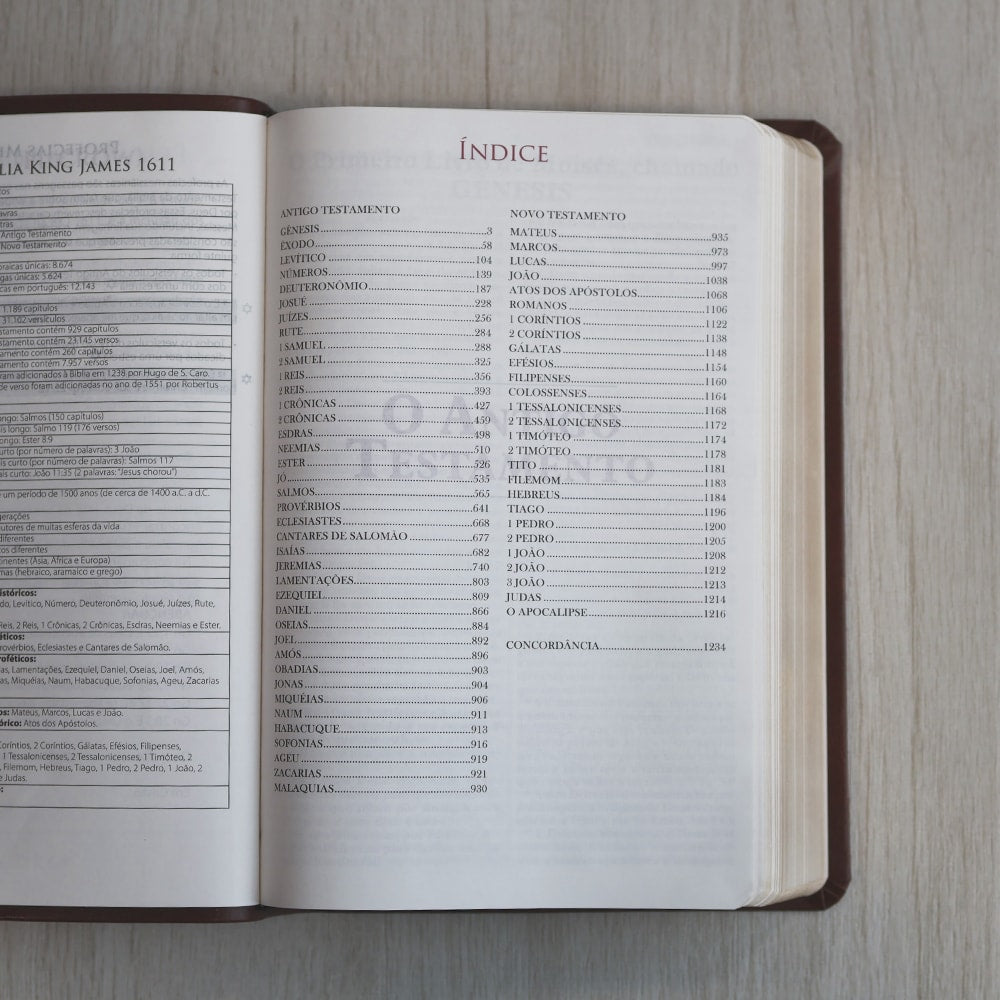 LIA KING JAMES 1611
Antigo Testamento
Novo Testamento
únicas: 8.674
únicas: 5.624
em português: 12.143
1.189 capítulos
31.102 versículos
contém 929 capítulos
contém 23.145 versos
contém 260 capítulos
contém 7.957 versos
adicionados à Bíblia em 1238 por Hugo de S. Caro.
de verso foram adicionadas no ano de 1551 por Robertus
Salmos (150 capítulos)
longo: Salmo 119 (176 versos)
Ester 8:9
curto (por número de palavras): 3 João
curto (por número de palavras): Salmos 117
curto: João 11:35 (2 palavras: "Jesus chorou")
um período de 1500 anos (de cerca de 1400 a.C. a d.C.
gerações
autores de muitas esferas da vida
diferentes
diferentes
(Ásia, África e Europa)
(hebraico, aramaico e grego)
Levítico, Número, Deuteronômio, Josué, Juízes, Rute,
Reis, 2 Reis, 1 Crônicas, 2 Crônicas, Esdras, Neemias e Ester.
Provérbios, Eclesiastes e Cantares de Salomão.
Lamentações, Ezequiel, Daniel, Oseias, Joel, Amós,
Miquéias, Naum, Habacuque, Sofonias, Ageu, Zacarias
Mateus, Marcos, Lucas e João.
Atos dos Apóstolos.
2 Coríntios, Gálatas, Efésios, Filipenses,
1 Tessalonicenses, 2 Tessalonicenses, 1 Timóteo, 2
Filemom, Hebreus, Tiago, 1 Pedro, 2 Pedro, 1 João, 2
e Judas.
ÍNDICE
ANTIGO TESTAMENTO
GÊNESIS...3
ÊXODO...58
LEVÍTICO...104
NÚMEROS...139
DEUTERONÔMIO...187
JOSUÉ...228
JUÍZES...256
RUTE...284
1 SAMUEL...288
2 SAMUEL...325
1 REIS...356
2 REIS...393
1 CRÔNICAS...427
2 CRÔNICAS...459
ESDRAS...498
NEEMIAS...510
ESTER...526
JÓ...535
SALMOS...565
PROVÉRBIOS...641
ECLESIASTES...668
CANTARES DE SALOMÃO...677
ISAÍAS...682
JEREMIAS...740
LAMENTAÇÕES...803
EZEQUIEL...809
DANIEL...866
OSEIAS...884
JOEL...892
AMÓS...896
OBADIAS...903
JONAS...904
MIQUÉIAS...906
NAUM...911
HABACUQUE...913
SOFONIAS...916
AGEU...919
ZACARIAS...921
MALAQUIAS...930
NOVO TESTAMENTO
MATEUS...935
MARCOS...973
LUCAS...997
JOÃO...1038
ATOS DOS APÓSTOLOS...1068
ROMANOS...1106
1 CORÍNTIOS...1122
2 CORÍNTIOS...1138
GÁLATAS...1148
EFÉSIOS...1154
FILIPENSES...1160
COLOSSENSES...1164
1 TESSALONICENSES...1168
2 TESSALONICENSES...1172
1 TIMÓTEO...1174
2 TIMÓTEO...1178
TITO...1181
FILEMOM...1183
HEBREUS...1184
TIAGO...1196
1 PEDRO...1200
2 PEDRO...1205
1 JOÃO...1208
2 JOÃO...1212
3 JOÃO...1213
JUDAS...1214
O APOCALIPSE...1216
CONCORDÂNCIA...1234